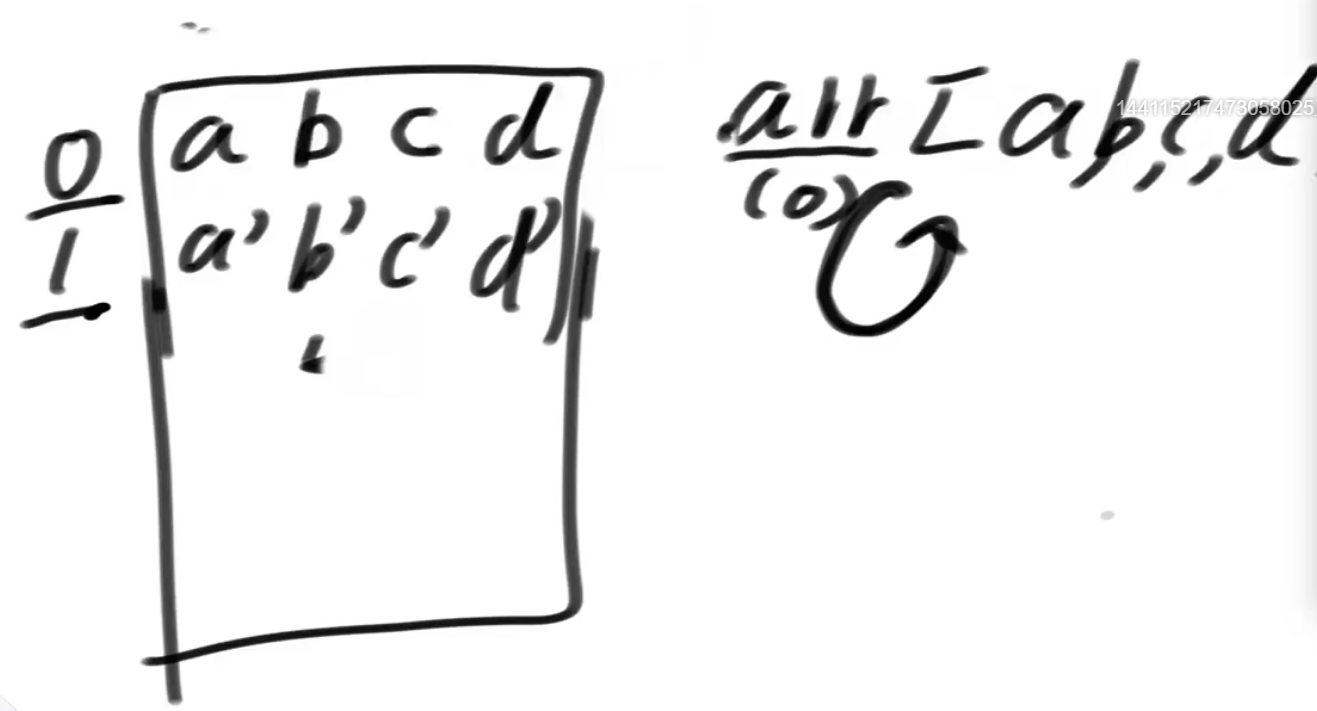 0 a b c d
1 a' b' c' d'
arr [a, b, c, d
(0)
144115217473058025